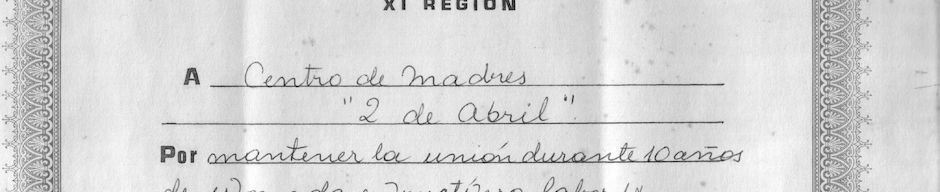 XI REGION
A Centro de Madres
"2 de Abril".
Por mantener la unión durante 10 años
de